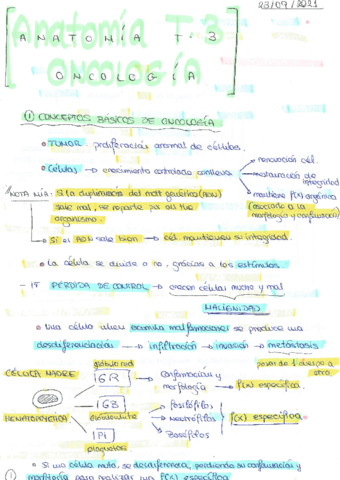 23/09/2021
Anatomía T-3
ANATOMÍA T.3
ONCOLOGÍA
① CONCEPTOS BÁSICOS DE ONCOLOGÍA
• TUMOR. proliferación anormal de células.
• Células → crecimiento controlado conlleva
→ renovación cél.
→ restauración de integridad
→ mantiene f(x) orgánica
(asociado a la morfología y conformación)
NOTA MÍA: Si la duplicación del mat genético (ADN)
sale mal, se reparte por all the
organismo.
• Si el ADN sale bien → cél. mantienen su integridad.
• La célula se divide o no, gracias a los estímulos.
- IF PÉRDIDA DE CONTROL → crecen células mucho y mal
MALIGNIDAD
• Una célula when acumula malformaciones se produce una
desdiferenciación → infiltración → invasión → metástasis
pasar de 1 tejido a otro.
glóbulo rojo
CÉLULA MADRE
GR → Conformación y morfología → f(x) específica.
HEMATOPOYÉTICA
GB
→ Eosinófilos
→ neutrófilos
→ Basófilos
f(x) específica.
Pl
plaquetas
• Si una célula muta, se desdiferencia, perdiendo su conformación y
morfología para realizar un f(x) específica
①